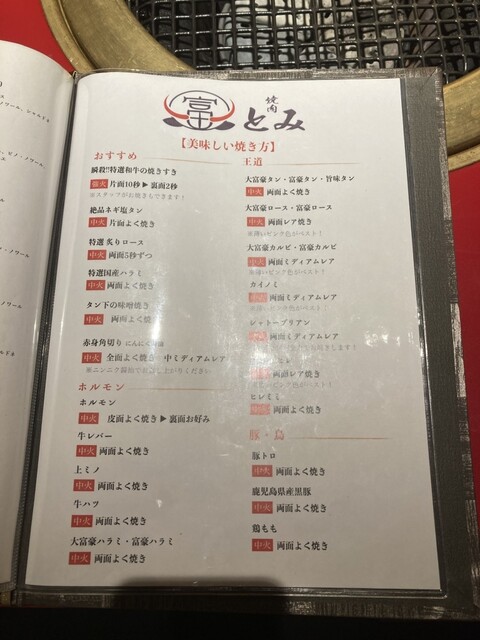 富
焼肉
とみ
【美味しい焼き方】
おすすめ
瞬殺!!特選和牛の焼きすき
強火 片面10秒▶裏面2秒
※スタッフがお焼きもできます!
絶品ネギ塩タン
中火 片面よく焼き
特選 炙りロース
中火 両面5秒ずつ
特選国産ハラミ
中火 両面よく焼き
タン下の味噌焼き
中火 両面よく焼き
赤身角切り
中火 全面よく焼き 中ミディアムレア
ホルモン
ホルモン
中火 皮面よく焼き▶裏面お好み
牛レバー
中火 両面よく焼き
上ミノ
中火 両面よく焼き
牛ハツ
中火 両面よく焼き
大富豪ハラミ・富豪ハラミ
中火 両面よく焼き
王道
大富豪タン・富豪タン・旨味タン
中火 両面よく焼き
大富豪ロース・富豪ロース
中火 両面レア焼き
※薄いピンク色がベスト!
大富豪カルビ・富豪カルビ
中火 両面ミディアムレア
※薄いピンク色がベスト!
カイノミ
中火 両面ミディアムレア
※薄いピンク色がベスト!
シャトーブリアン
中火 両面ミディアムレア
ヒレ
中火 両面レア焼き
ヒレミミ
中火 両面よく焼き
豚・鳥
豚トロ
中火 両面よく焼き
鹿児島県産黒豚
中火 両面よく焼き
鶏もも
中火 両面よく焼き